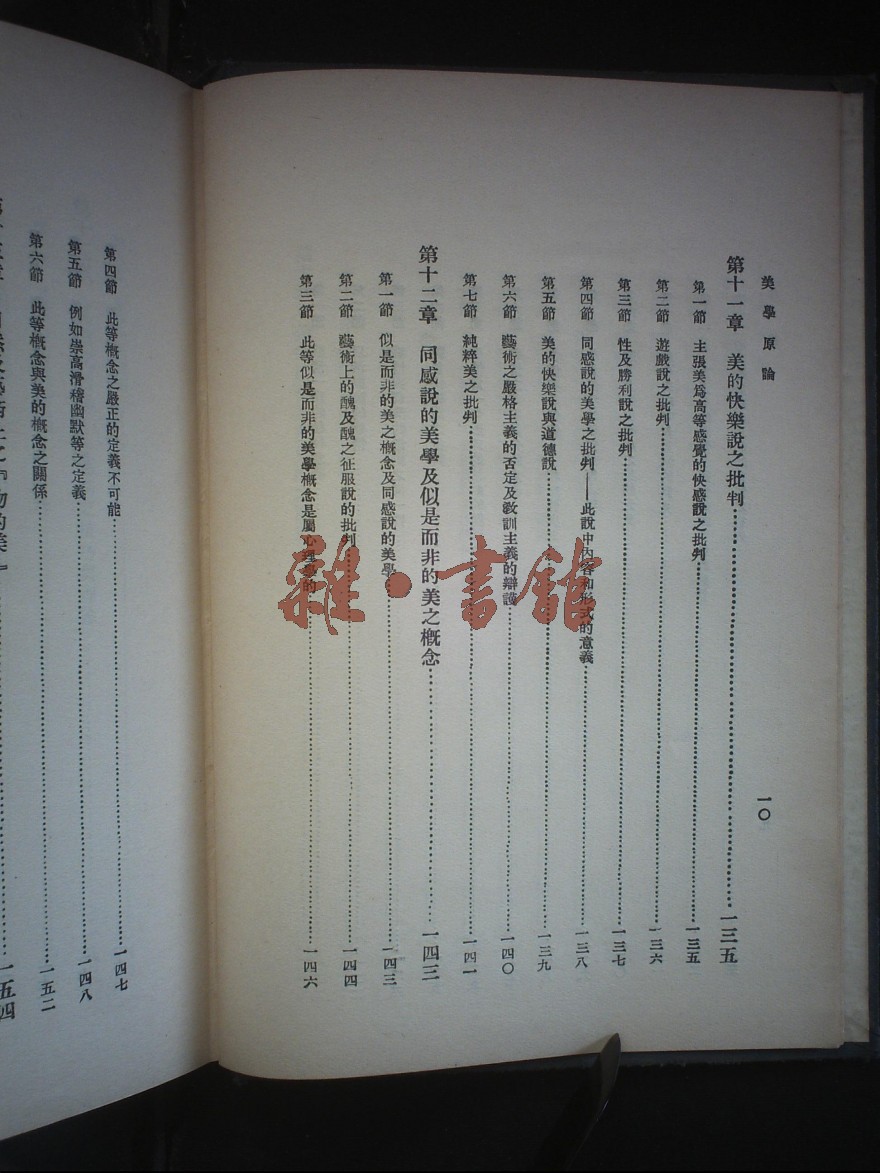 美學原論
一〇
第十一章 美的快樂說之批判…………一三五
第一節 主張美爲高等感覺的快感說之批判…………一三五
第二節 遊戲說之批判…………一三六
第三節 性及勝利說之批判…………一三七
第四節 同感說的美學之批判——此說中內容和形式的意義…………一三八
第五節 美的快樂說與道德說…………一三九
第六節 藝術之嚴格主義的否定及敎訓主義的辯護…………一四〇
第七節 純粹美之批判…………一四一
第十二章 同感說的美學及似是而非的美之概念…………一四三
第一節 似是而非的美之概念及同感說的美學…………一四三
第二節 藝術上的醜及醜之征服說的批判…………一四四
第三節 此等似是而非的美學概念是屬心理學的…………一四六
第四節 此等概念之嚴正的定義不可能…………一四七
第五節 例如崇高滑稽幽默等之定義…………一四八
第六節 此等概念與美的概念之關係…………一五二
之『物的美』…………一五四
雜·書館